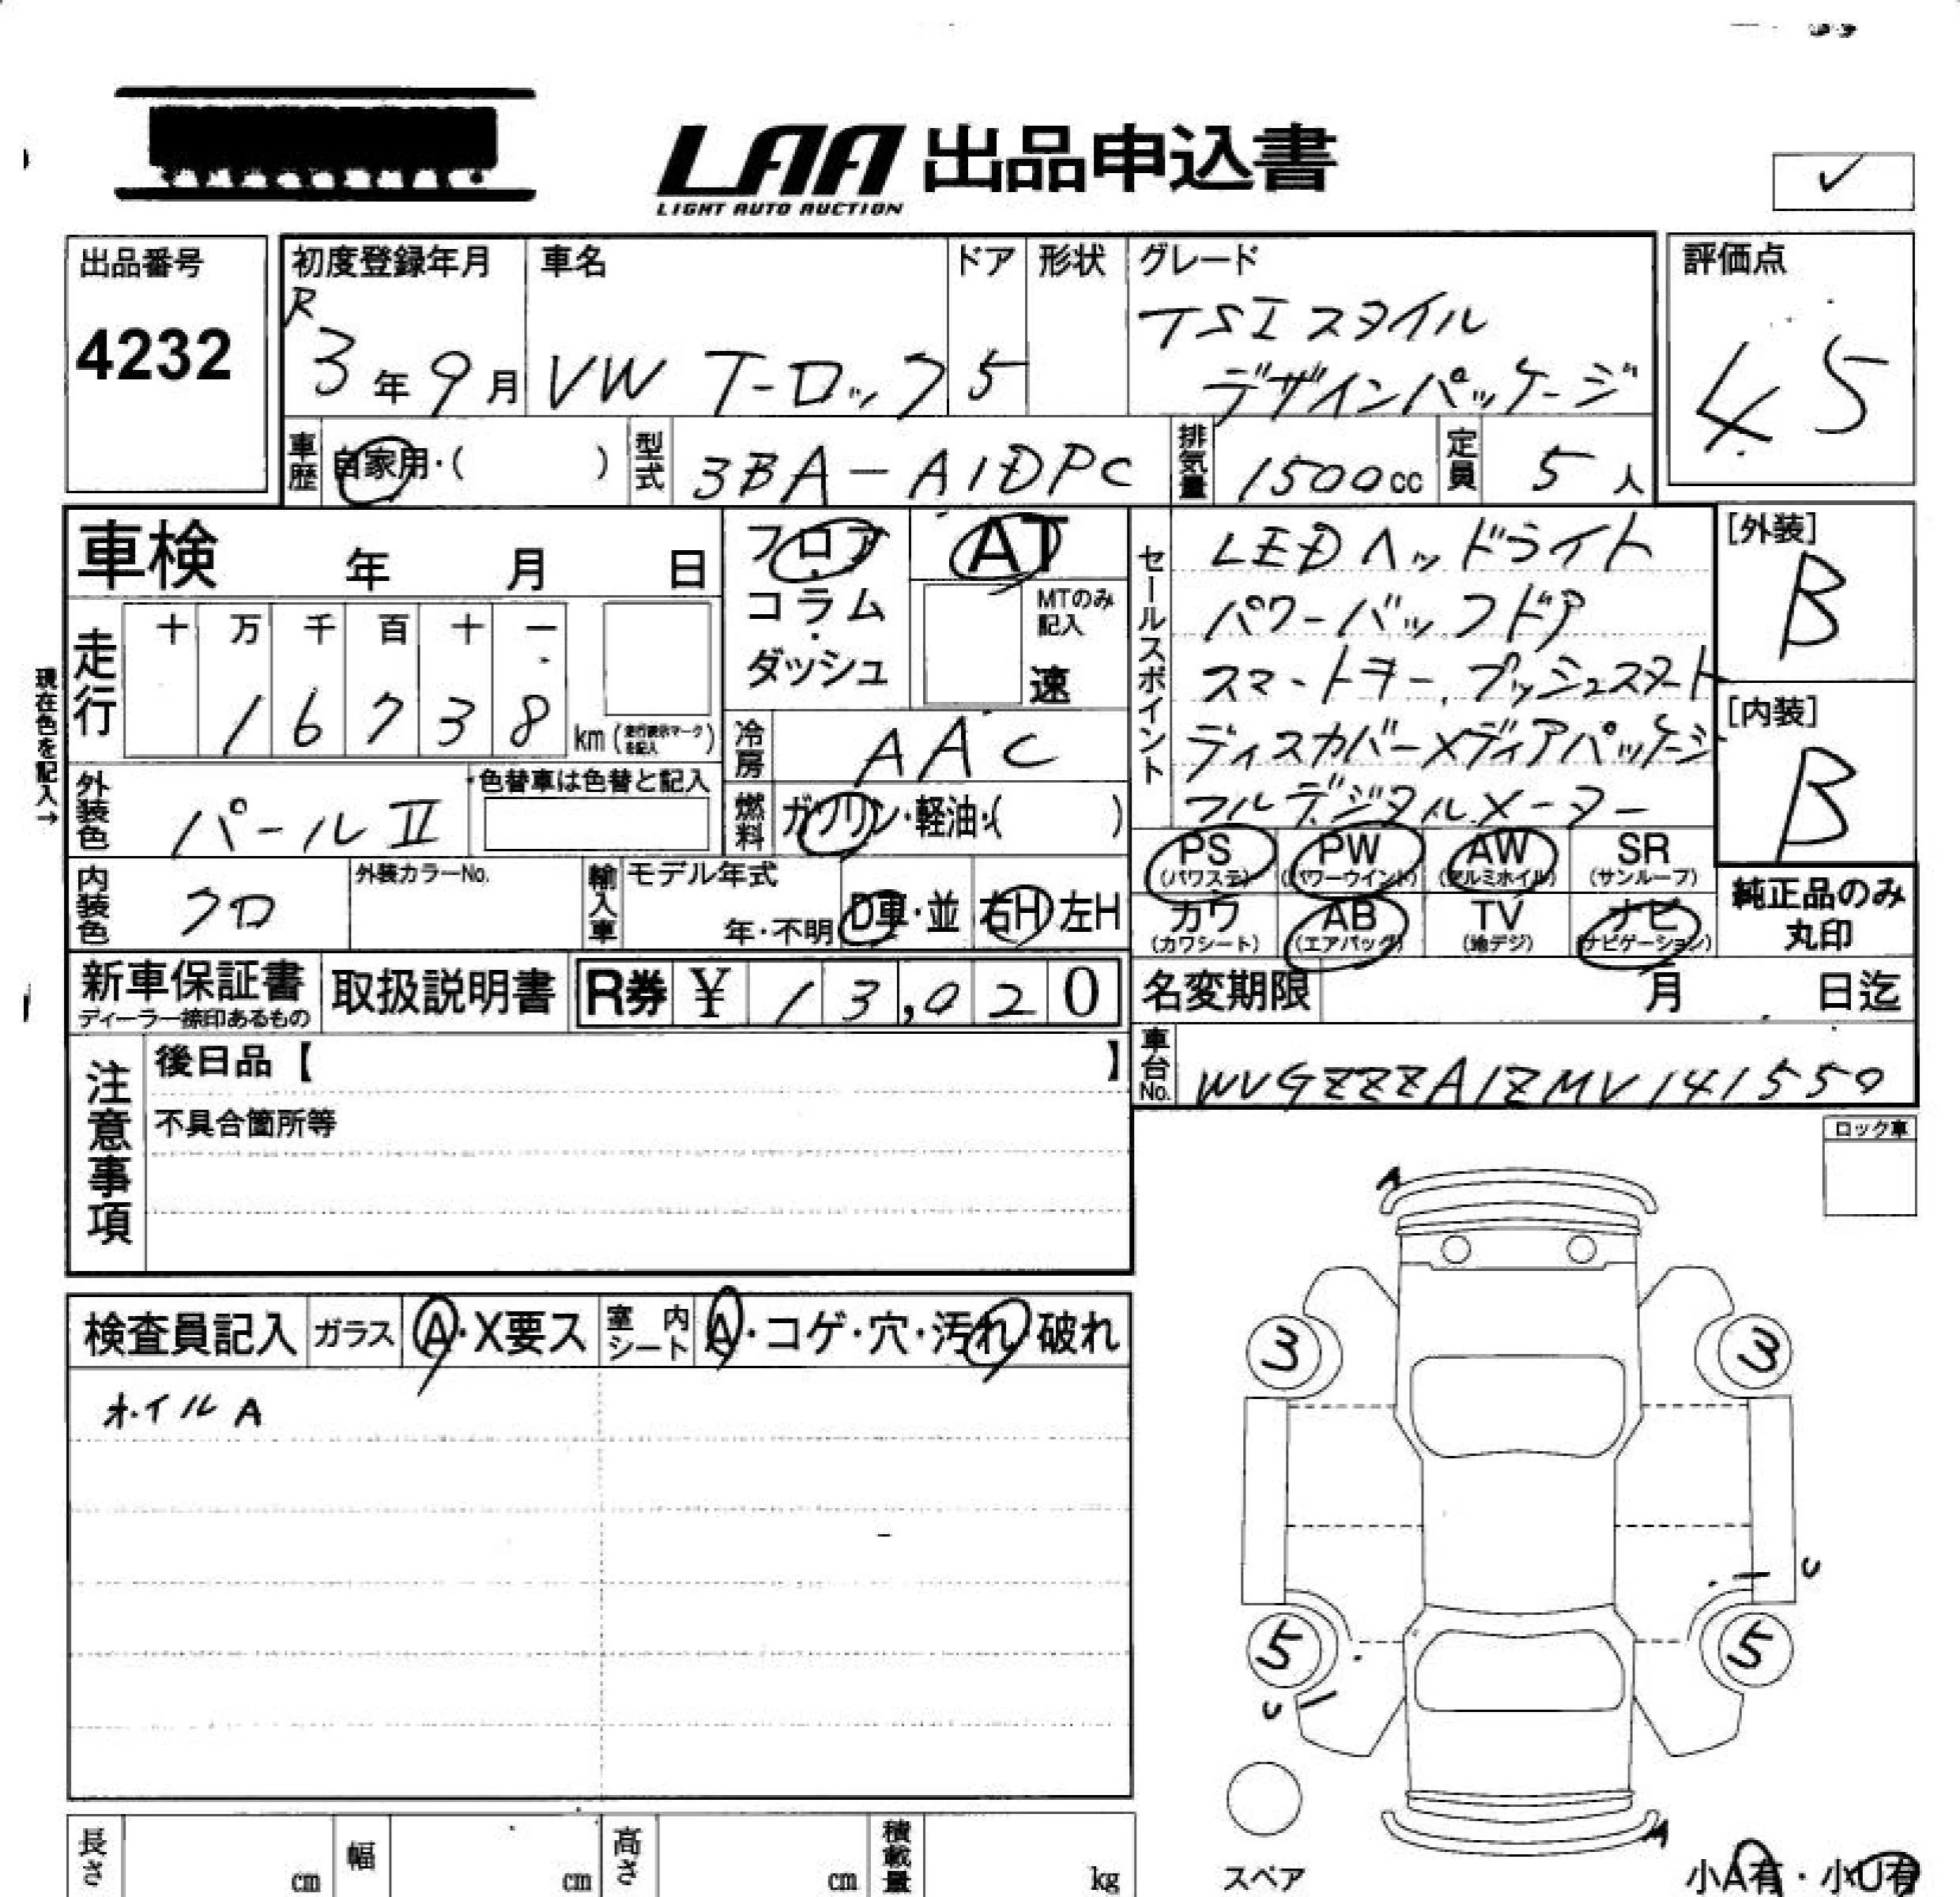 LAA 出品申込書
LIGHT AUTO AUCTION
✓
出品番号
4232
初度登録年月
R
3年9月
車名
VW T-ロック
ドア
5
形状
グレード
TSI スタイル
デザインパッケージ
評価点
4.5
車歴
自家用・( )
型式
3BA-A1DPC
排気量
1500cc
定員
5人
車検 年 月 日
フロア・コラム・ダッシュ
AT
MTのみ記入
速
セールスポイント
LEDヘッドライト
パワーバックドア
スマートキー, プッシュスタート
ディスカバーメディアパッケージ
フルデジタルメーター
[外装]
B
[内装]
B
現在色を記入→
走行
十 万 千 百 十 一
1 6 7 3 8
km (走行表示マークを記入)
冷房
AAC
外装色
パールⅡ
・色替車は色替と記入
燃料
ガソリン・軽油・( )
PS (パワステ)
PW (パワーウインド)
AW (アルミホイル)
SR (サンルーフ)
カワ (カワシート)
AB (エアバッグ)
TV (地デジ)
ナビ (ナビゲーション)
純正品のみ丸印
内装色
クロ
外装カラーNo.
輸入車
モデル年式
年・不明
D車・並
右H 左H
新車保証書
ディーラー捺印あるもの
取扱説明書
R券 ¥ 13,020
名変期限 月 日迄
車台No.
WVGZZZA1ZMV141550
注意事項
後日品【 】
不具合箇所等
ロック車
検査員記入
ガラス
A・X要ス
室内シート
A・コゲ・穴・汚れ 破れ
ホイルA
A
3
3
U
5
5
U
A
スペア
小A有・小U有
長さ cm
幅 cm
高さ cm
積載量 kg